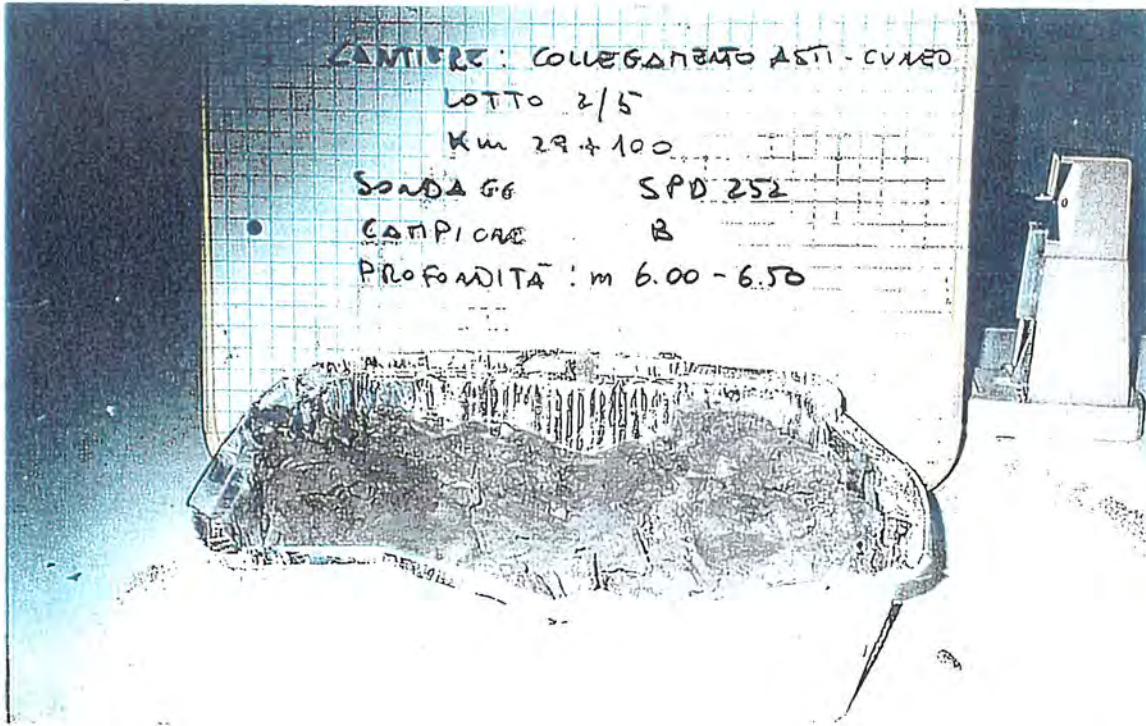 CANTIERE : COLLEGAMENTO ASTI - CUNEO
LOTTO 2/5
Km 29+100
SONDAGG SPD 252
CAMPIONE B
PROFONDITÀ : m 6.00 - 6.50